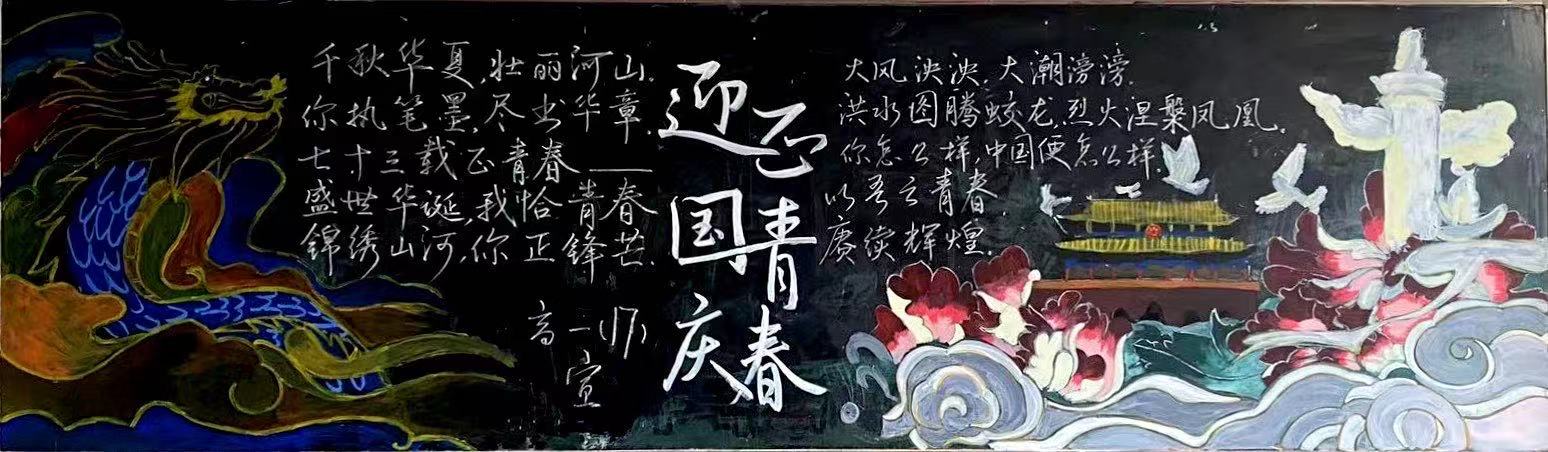 千秋华夏,壮丽河山.
你执笔墨,尽书华章.
七十三载正青春——
盛世华诞,我恰青春
锦绣山河,你正锋芒.
高一(17)
宣
迎国庆
正青春
大风泱泱,大潮滂滂.
洪水图腾蛟龙,烈火涅槃凤凰.
你怎么样,中国便怎么样.
以吾之青春,
赓续辉煌.